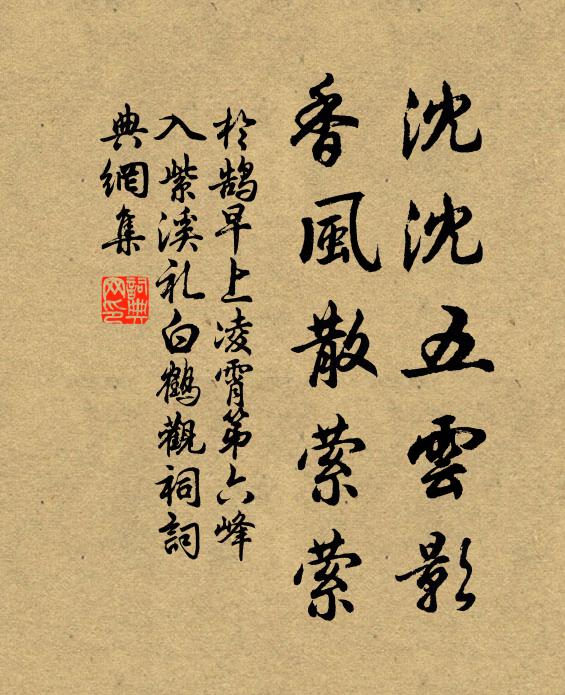 沈沈五雲影
香風散縈縈
於鵠早上凌霄第六峰
入紫溪礼白鶴觀祠詞
典網集
詞典
网印